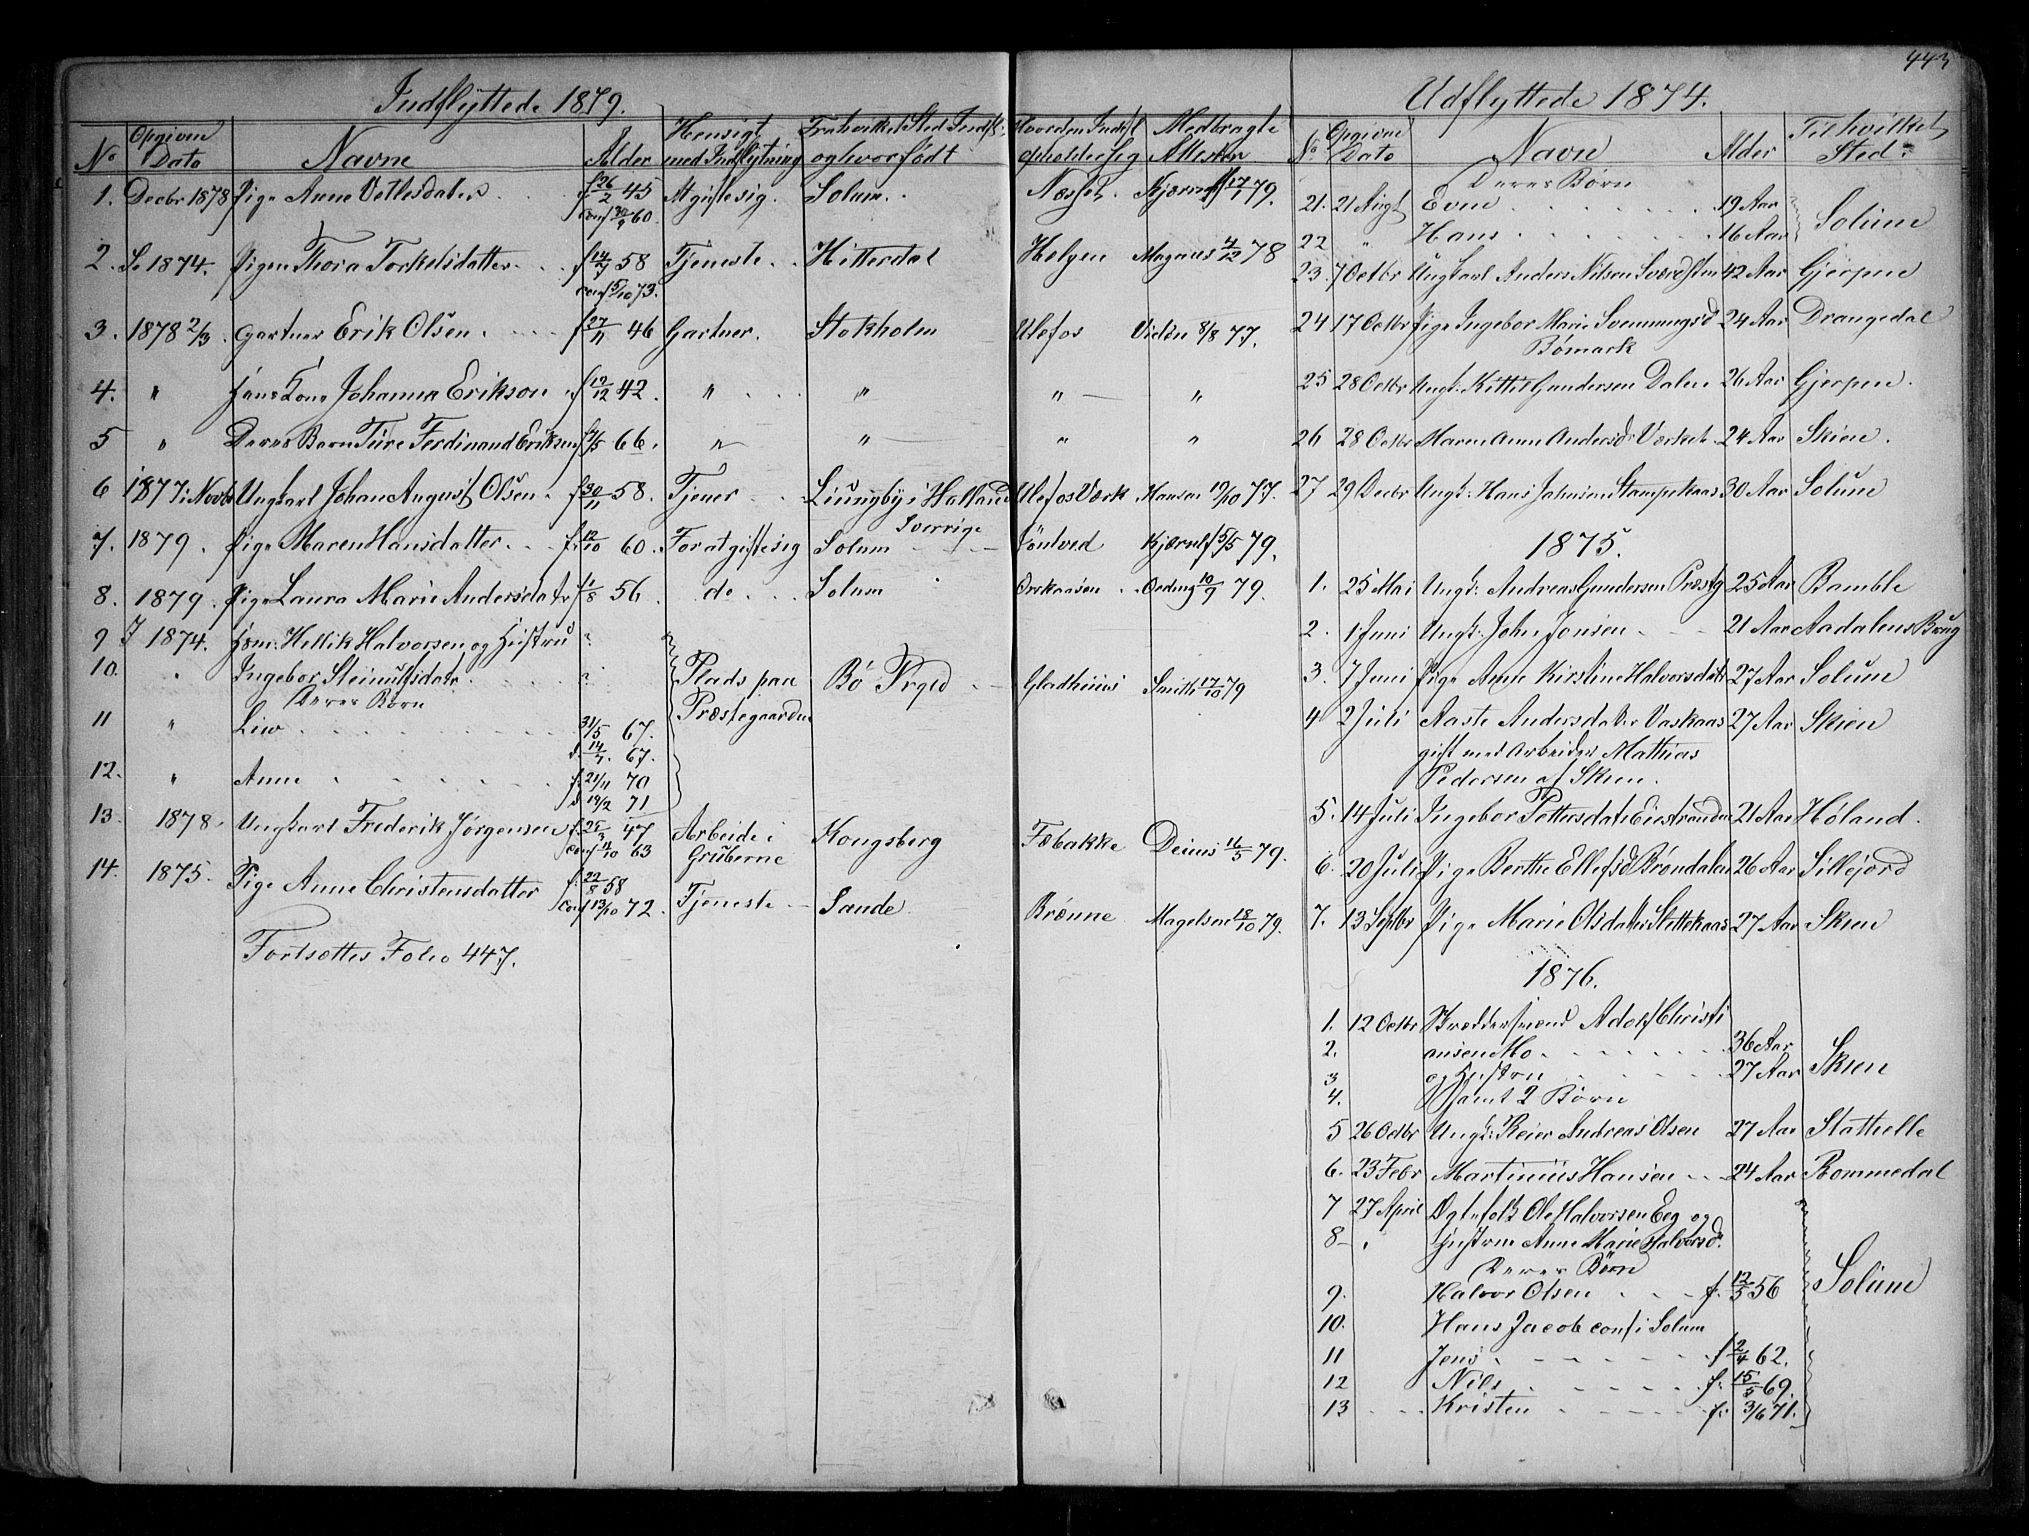 443
Indflyttede 1879.
No Opgiven Dato Navne Alder Hensigt med Indflytning Fra hvilket Sted Indfl. og hvor født Hvor den Indfl. opholder sig Medbragte Attester
1. Decbr 1878 Pige Anne Vetlesdatter f 26/2 45 At gifte sig. Solum. Næset. Kjærulf 17/1 79.
conf 30/9 60.
2. So 1874. Pigen Thora Torkelsdatter f 14/7 58 Tjeneste Hitterdal Helgen Magnus 4/12 78
conf 5/10 73.
3. 1878 2/3 Gartner Erik Olsen f 27/11 46 Gartner. Stokholm Ulefos Vidén 8/8 77.
4. " Hans Kone Johanna Erikson f 12/12 42. " " " "
5 " Deres Barn Ture Ferdinand Eriksen 66. " " " "
6 1877 i Novbr Ungkarl Johan August Olsen f 30/11 58. Tjener Liungby i Halland Ulefos Værk Hansen 19/10 77.
Sverrige
7. 1879. Pige Maren Hansdatter f. 12/10 60. For at gifte sig Solum Føntved Kjærulf 5/5 79.
8. 1879. Pige Laura Marie Andersdatr f 1/8 56. do Solum Orekaasen Oeding 10/9 79.
9 I 1874. Hsm. Hellik Halvorsen og Hustru "
10. " Ingebor Steinulfsdatr " Plads paa Præstegaarden Bø Prgld Gladhuus Smith 17/10 79
Deres Børn
11 " Liv 31/5 67.
d. 14/7. 67.
12. " Anne f. 21/11 70
d. 19/2 71
13. 1878. Ungkarl Frederik Jørgensen f. 25/3 47 Arbeide i Gruberne Kongsberg Fæbakke Deinus 16/5 79.
conf 11/10 63
14. 1875. Pige Anne Christensdatter f. 22/8 58 Tjeneste Sande Brænne Magelsen 18/10 79.
conf 13/10 72.
Fortsættes Folio 447.
Udflyttede 1874.
No Opgivne Dato Navn Alder Til hvilket Sted.
Deres Børn
21. 21 Augt Even 19 Aar Solum
22 " Hans 16 Aar
23. 7 Octbr Ungkarl Anders Nilsen Sværdsten 42 Aar Gjerpen
24 17 Octbr Pige Ingebor Marie Svennungsd 24 Aar Drangedal
Bømark
25 28 Octbr Ungk: Kittil Gundersen Dalen 26 Aar Gjerpen.
26 28 Octbr Maren Anne Andersdr Værket 24 Aar Skien.
27 29 Decbr Ungk: Hans Johnsen Stampekaas 30 Aar Solum
1875.
1. 25 Mai Ungk. Andreas Gundersen Præstg 25 Aar Bamble
2. 1 Juni Ungk. John Jonsen 21 Aar Aadalens Brug
3. 7 Juni Pige Anne Kirstine Halvorsdatr 27 Aar Solum
4 2 Juli Aaste Andersdater Vaskaas 27 Aar Skien
gift med Arbeider Mathias
Pedersen af Skien.
5. 14 Juli Ingebor Pettersdatr Eiestranden 21 Aar Høland.
6. 20 Juli Pige Berthe Ellefsd Brøndalen 26 Aar Sillejord
7. 13 Septbr Pige Marie Olsdatter Slettekaas 27 Aar Skien
1876.
1. 12 Octbr Skræddersvend Adolf Christi
2. ansen Mo 36 Aar
3 og Hustru 27 Aar Skien
4. Samt 2 Børn
5 26 Octbr Ungk: Reier Andreas Olsen 27 Aar Stathelle
6. 23 Febr Martinius Hansen 24 Aar Rommedal
7 27 April Ægtefolk Ole Halvorsen Eeg og
8 " Hustrue Anne Marie Halvorsdr.
Deres Børn
9. Halvor Olsen f. 12/5 56 Solum
10. Hans Jacob conf i Solum
11 Jens f 2/4 62.
12 Nils f. 15/5 69.
13 Kristen f. 3/6 71.